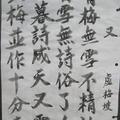 又
盧梅坡
有梅無雪不精
雪無詩俗了
暮詩成天又雪
梅並作十分